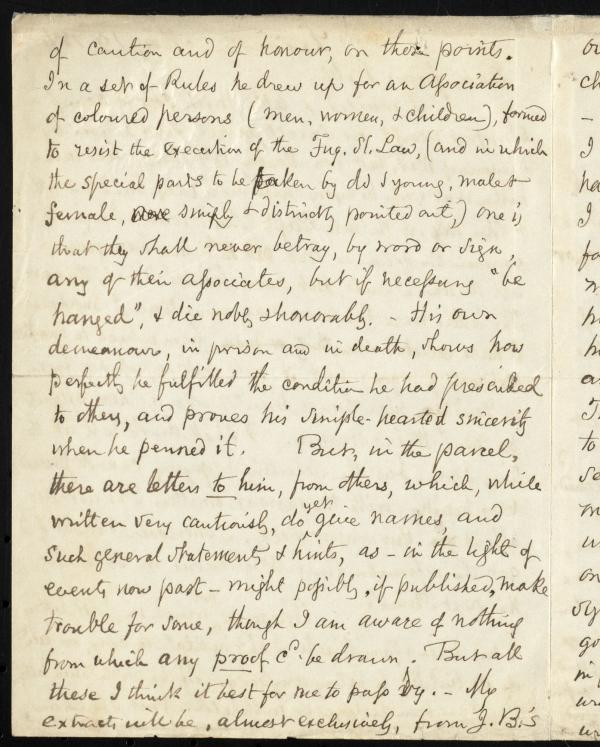 of caution and of honour, on those points.
In a set of Rules he drew up for an Association
of coloured persons (men, women, & children), formed
to resist the execution of the Fug. Sl. Law, (and in which
the special parts to be taken by old & young, male &
female, were simply & distinctly pointed out,) one is
that they shall never betray, by word or sign,
any of their associates, but if necessary "be
hanged", & die nobly & honorably. - His own
demeanour, in prison and in death, shows how
perfectly he fulfilled the condition he had prescribed
to others, and proves his simple-hearted sincerity
when he penned it. But, in the parcel,
there are letters to him, from others, which, while
written very cautiously, do yet give names, and
such general statements & hints, as - in the light of
events now past - might possibly, if published, make
trouble for some, though I am aware of nothing
from which any proof cd. be drawn. But all
these I think it best for me to pass by. - My
extracts will be, almost exclusively, from J. B.'s